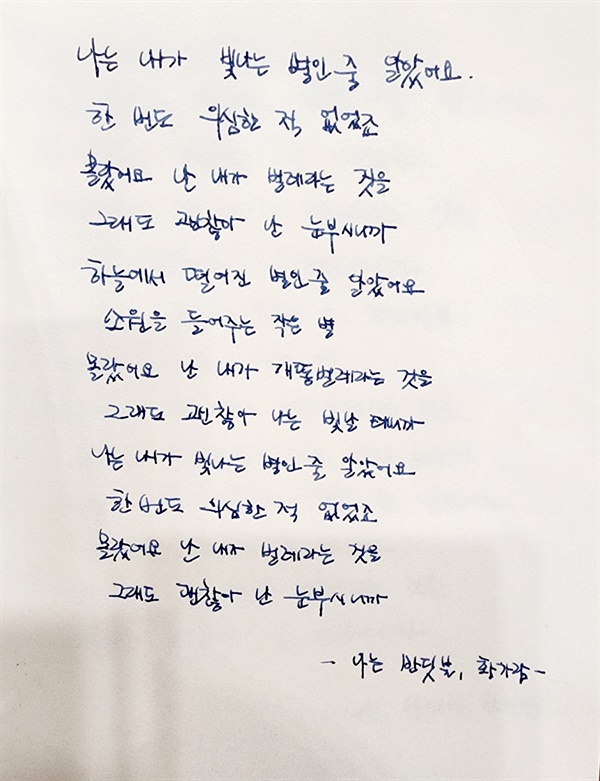 나는 내가 빛나는 별인 줄 알았어요.
한 번도 의심한 적 없었죠
몰랐어요 난 내가 벌레라는 것을
그래도 괜찮아 난 눈부시니까
하늘에서 떨어진 별인 줄 알았어요
소원을 들어주는 작은 별
몰랐어요 난 내가 개똥벌레라는 것을
그래도 괜찮아 나는 빛날 테니까
나는 내가 빛나는 별인 줄 알았어요
한 번도 의심한 적 없었죠
몰랐어요 난 내가 벌레라는 것을
그래도 괜찮아 난 눈부시니까
- 나는 반딧불, 황가람 -